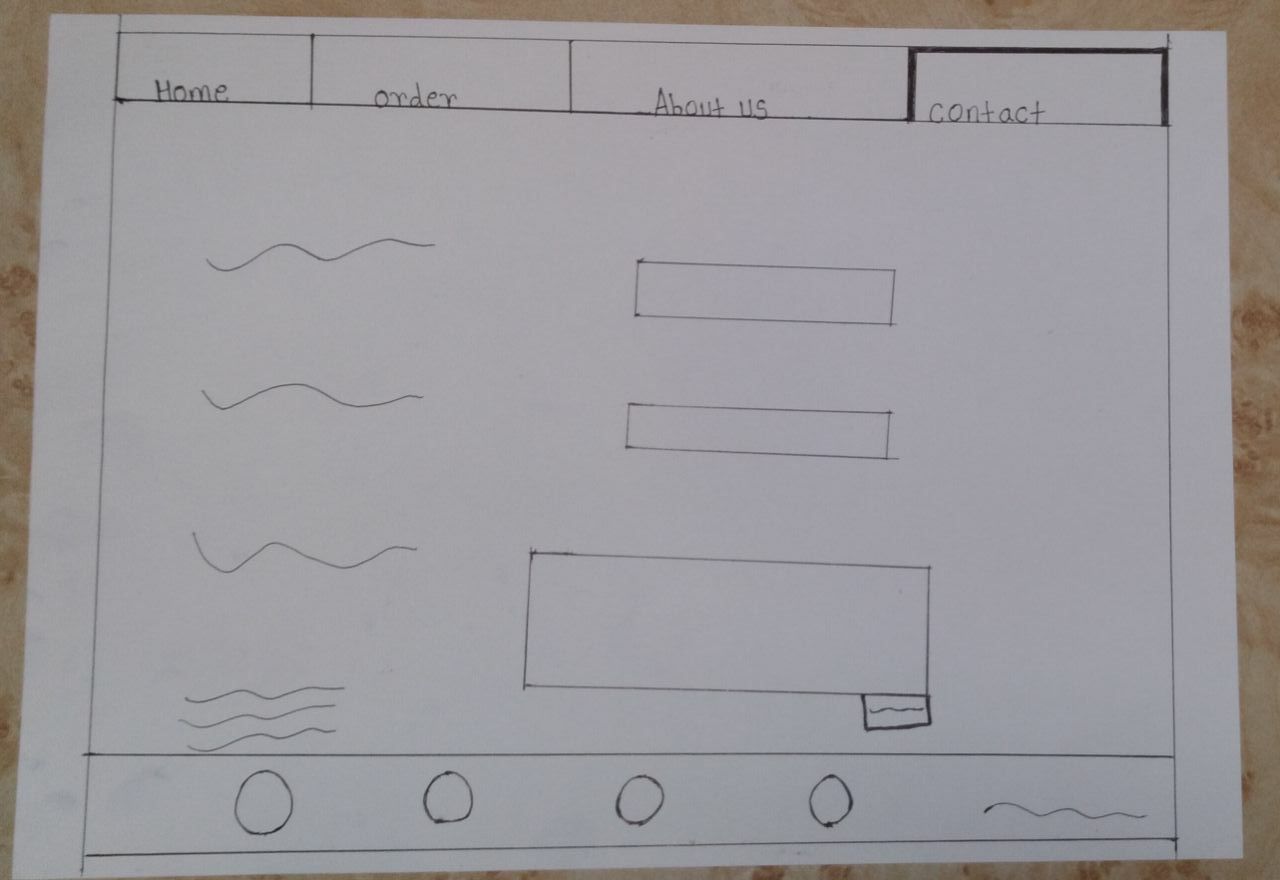 Home order About us contact